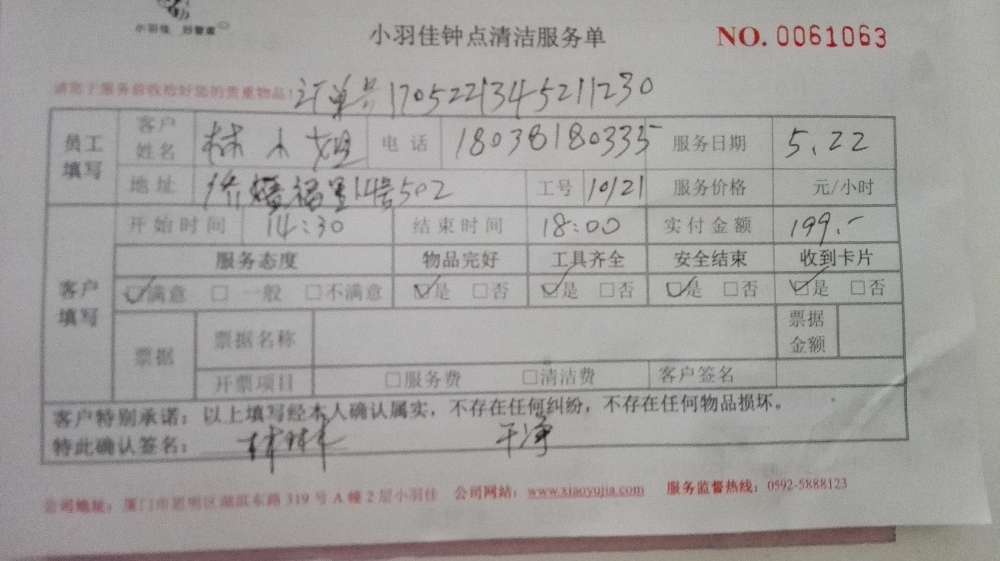 小羽佳 好管家
小羽佳钟点清洁服务单
NO. 0061063
请您于服务前收拾好您的贵重物品!
订单号1705221345211230
员工填写
客户姓名 林小姐 电话 18038180335 服务日期 5.22
地址 侨福里14号502 工号 10121 服务价格 元/小时
客户填写
开始时间 14:30 结束时间 18:00 实付金额 199.-
服务态度 物品完好 工具齐全 安全结束 收到卡片
☑满意 □一般 □不满意 ☑是 □否 ☑是 □否 ☑是 □否 ☑是 □否
票据 票据名称 票据金额
开票项目 □服务费 □清洁费 客户签名
客户特别承诺:以上填写经本人确认属实,不存在任何纠纷,不存在任何物品损坏。
特此确认签名: 干净
公司地址:厦门市思明区湖滨东路319号A幢2层小羽佳 公司网站:www.xiaoyujia.com 服务监督热线:0592-5888123